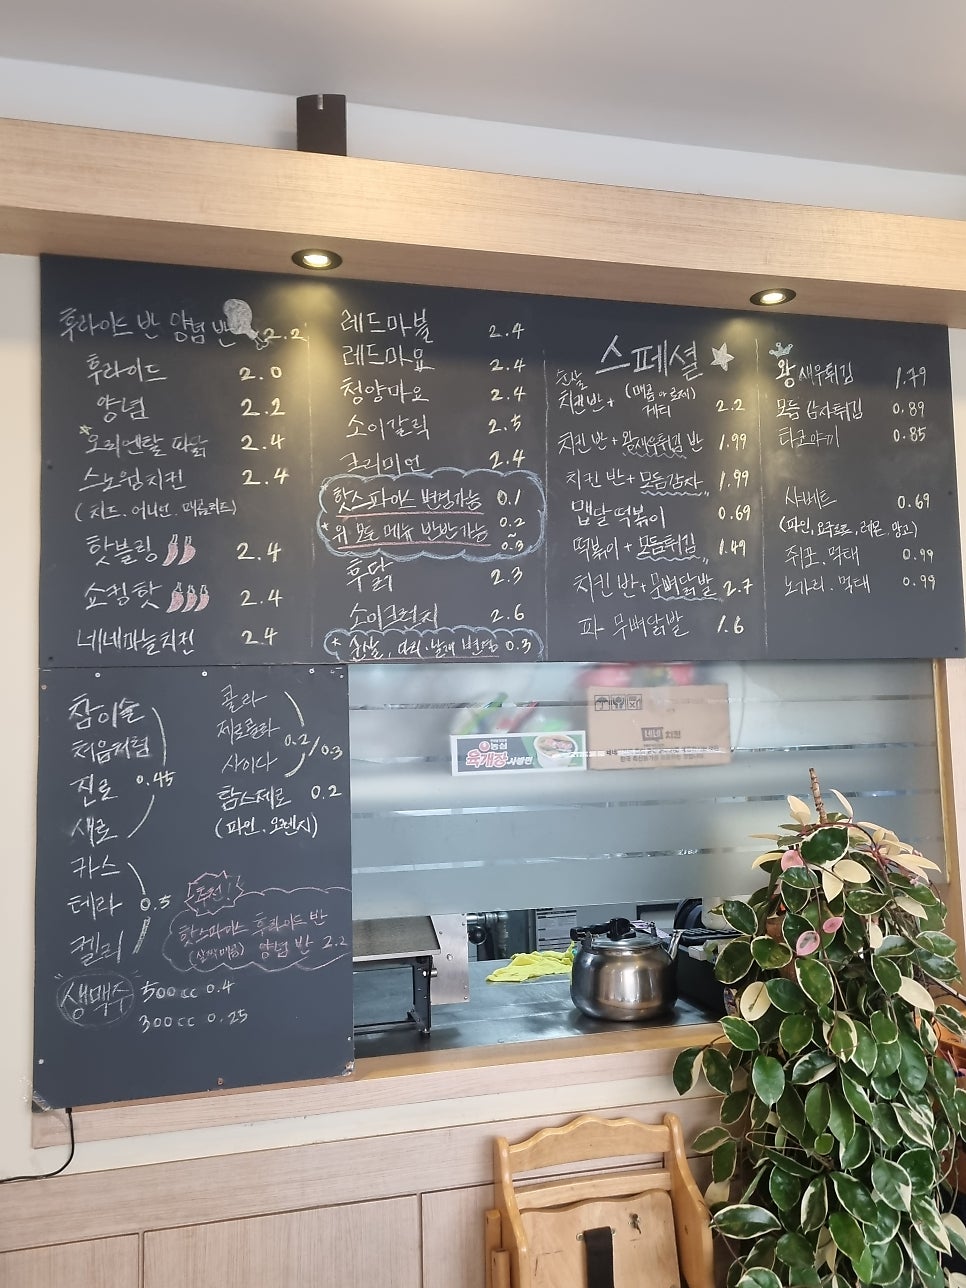 후라이드 반 양념 반 2.2
후라이드 2.0
양념 2.2
오리엔탈 파닭 2.4
스노윙치킨 2.4
(치즈.어니언.매콤커리)
핫블링 2.4
쇼킹핫 2.4
네네마늘치킨 2.4
레드마블 2.4
레드마요 2.4
청양마요 2.4
소이갈릭 2.5
크리미언 2.4
핫스파이스 변경가능 0.1
* 위 모든 메뉴 반반가능 0.2~0.3
후닭 2.3
소이크런치 2.6
* 순살, 다리.날개 변경 0.3
스페셜
순살
치킨반 + (매콤 or 로제)
2.2
치킨 반 + 왕새우튀김 반 1.99
치킨 반 + 모듬감자 1.99
맵달떡볶이 0.69
떡볶이 + 모듬튀김 1.49
치킨 반 + 무뼈닭발 2.7
파 무뼈닭발 1.6
왕새우튀김 1.79
모듬 감자튀김 0.89
타코야끼 0.85
샤베트 0.69
(파인,요구르트,레몬,망고)
쥐포.먹태 0.99
노가리.먹태 0.99
참이슬
처음처럼
진로 0.45
새로
카스
테라 0.5
켈리
생맥주 500cc 0.4
300cc 0.25
콜라
제로콜라 0.2/0.3
사이다
탐스제로 0.2
(파인.오렌지)
추천!
핫스파이스 후라이드 반
양념 반 2.2
농심
육개장 사발면
네네치킨